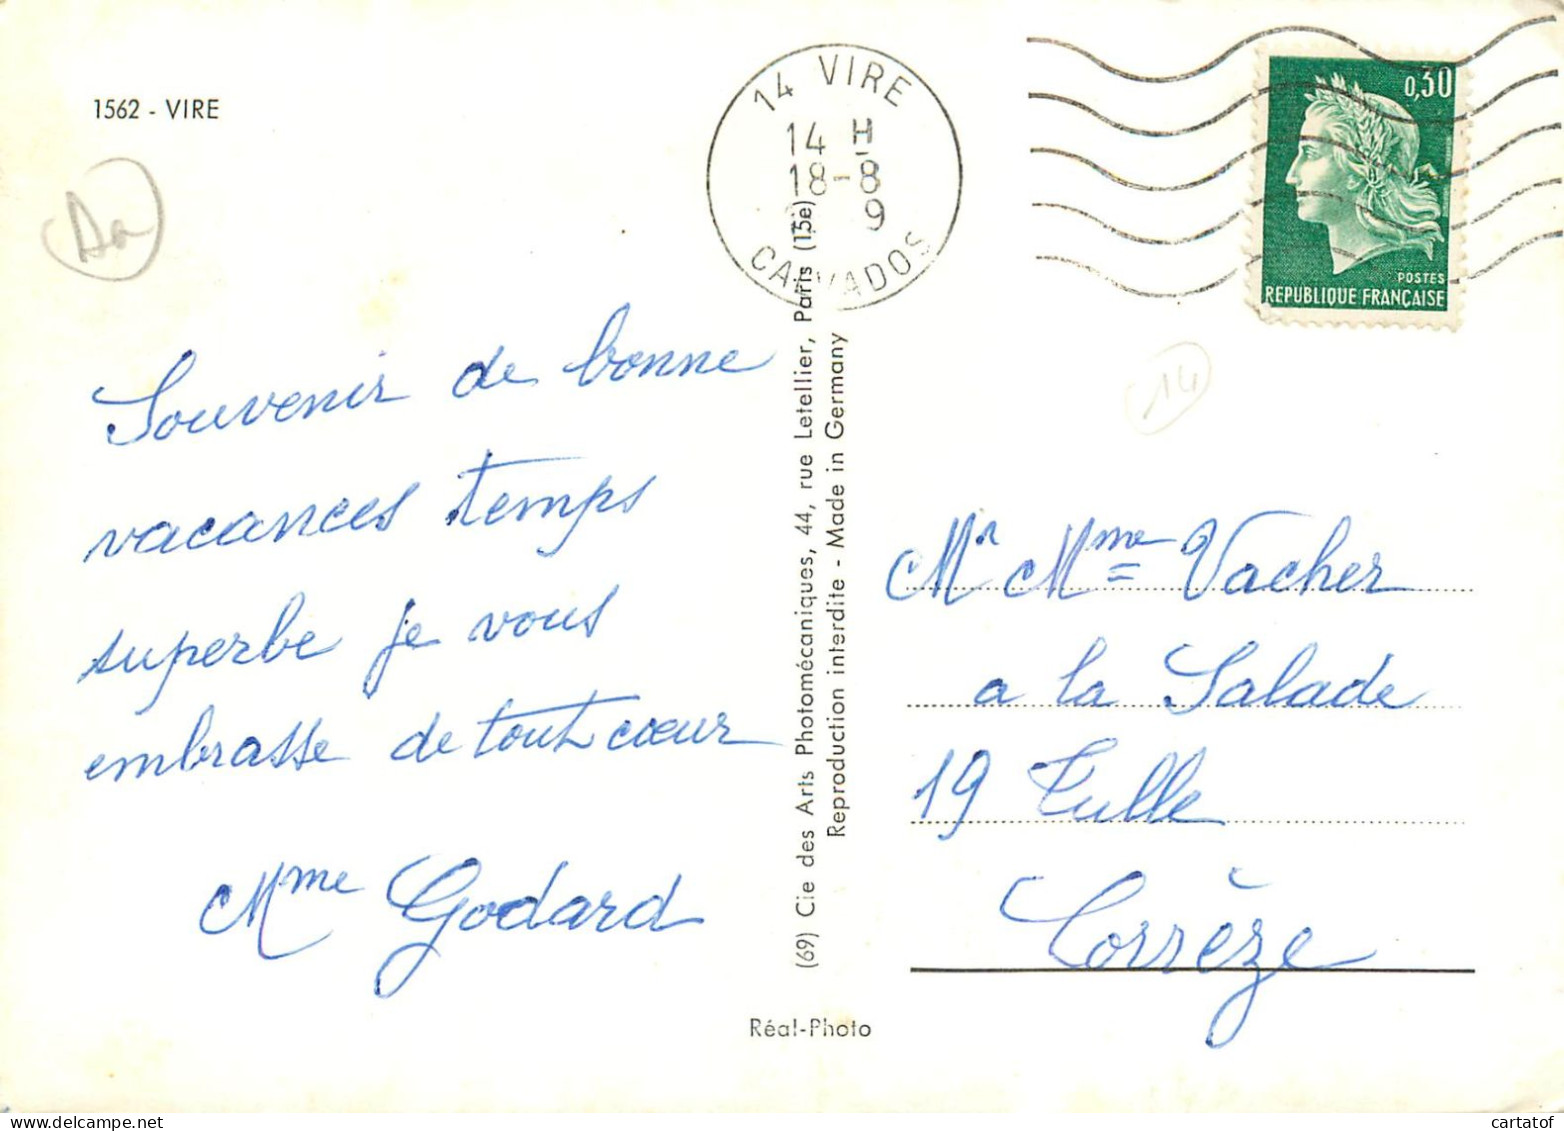 1562 - VIRE
14 VIRE
14 H
18-8
9
CALVADOS
0,30
POSTES
REPUBLIQUE FRANÇAISE
14
Souvenir de bonne
vacances temps
superbe je vous
embrasse de tout cœur
Mme Godard
(69) Cie des Arts Photomécaniques, 44, rue Letellier, Paris (15e)
Reproduction interdite - Made in Germany
Mr Mme Vacher
a la Salade
19 Tulle
Corrèze
Réal-Photo
cartatof